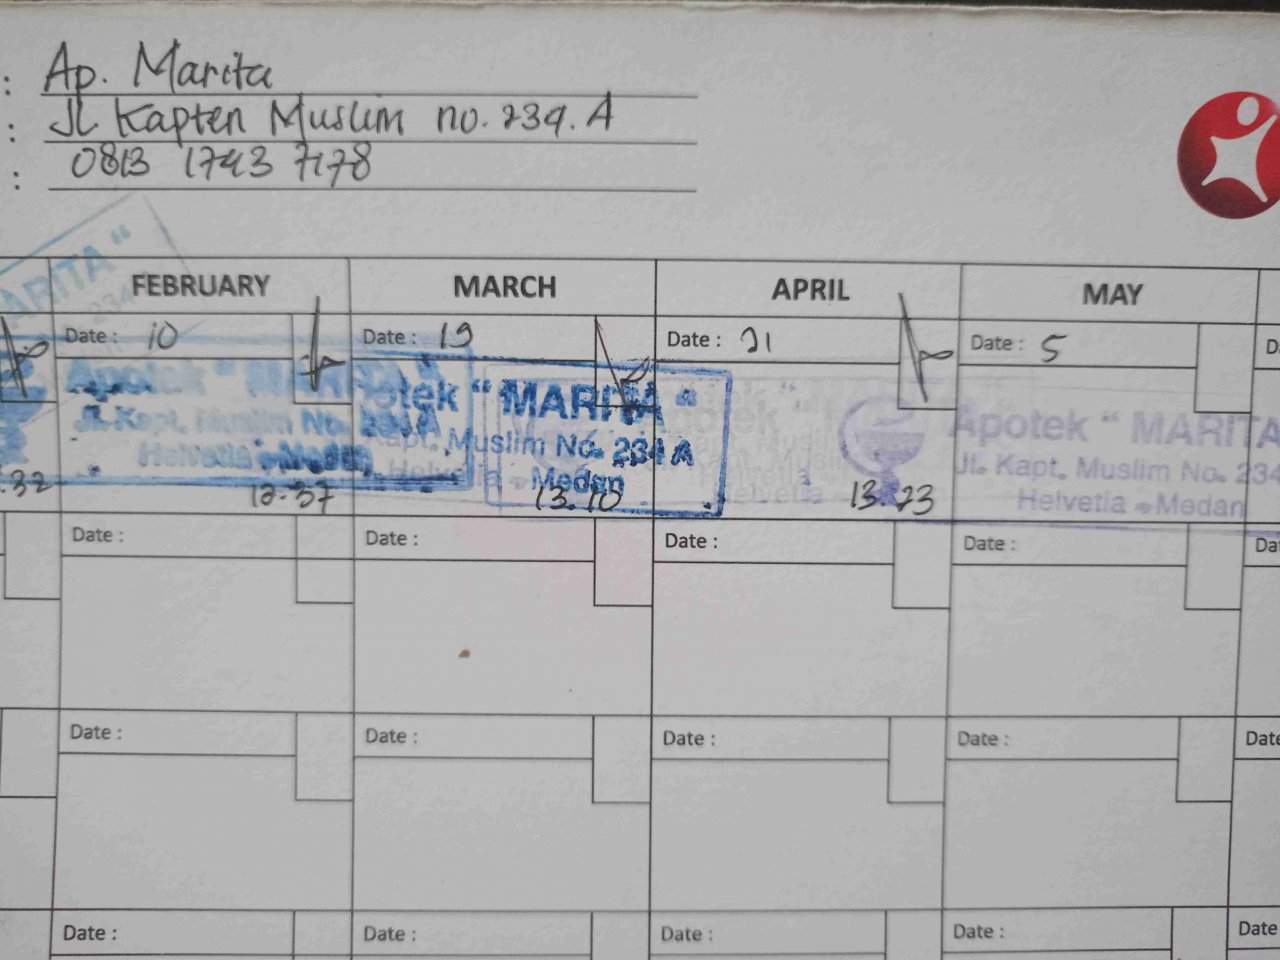 : Ap. Marita
: Jl Kapten Muslim no. 234. A
: 0813 1743 7178
ARITA"
234
FEBRUARY MARCH APRIL MAY
Date : 10 Date : 19 Date : 21 Date : 5
Apotek " MARITA
Jl. Kapt. Muslim No. 234 A
Helvetia - Medan
otek " MARITA "
Kapt. Muslim No. 234 A
Helvetia - Medan
Apotek " MARITA
Jl. Kapt. Muslim No. 234
Helvetia - Medan
.32 12.37 13.10 13.23
Date : Date : Date : Date : Da
Date : Date : Date : Date : Date
Date : Date : Date : Date : Date